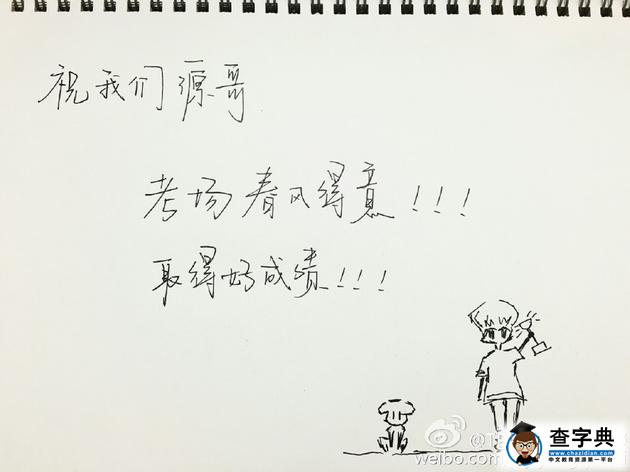 祝我们源哥
考场春风得意!!!
取得好成绩!!!
weibo.com
查字典
中文教育资源第一平台
www.chazidian.com